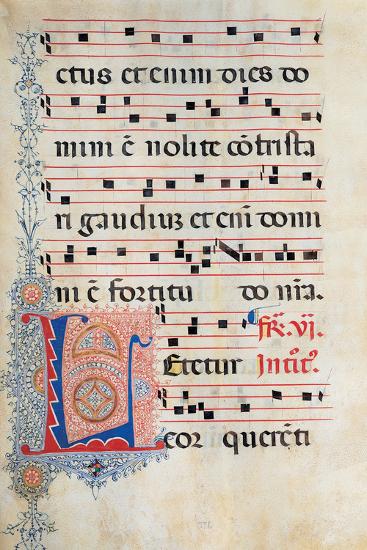 ctus et enim dies do
mini ē nolite cōtrista
ri gaudium et eni̅ domi
ni ē fortitu do nr̄a.
Fr̄. vi.
Letetur
cor querēti